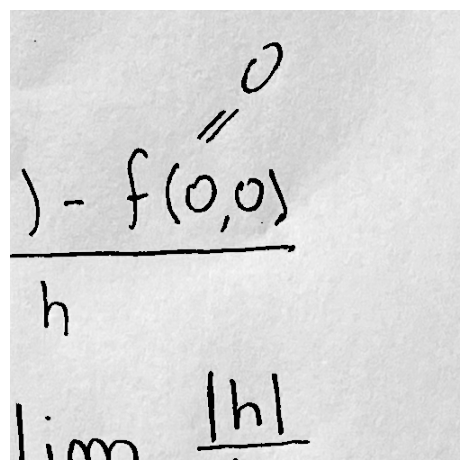 0
=
) - f(0,0)
h
lim |h|